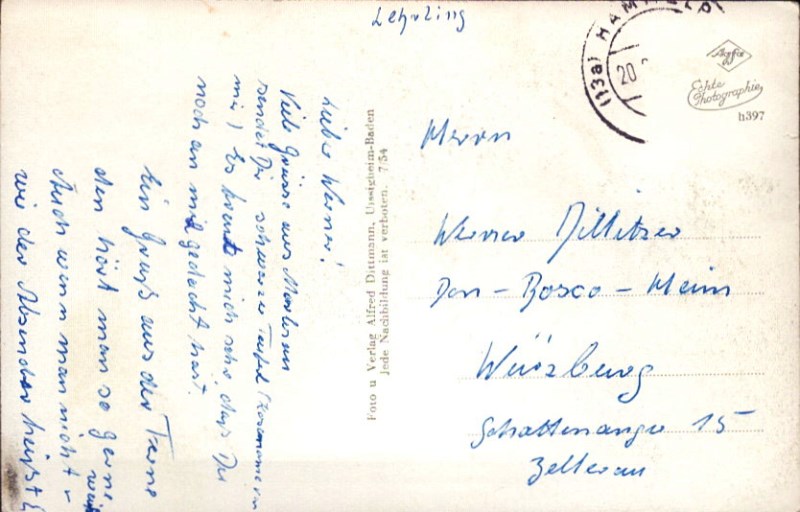 Lehrling
(13a) HAMMELB
20
Agfa
Echte
Photographie
h397
Lieber Werner!
Viele Grüsse aus
sendet Dir schwarzer Teufel (Kosename von
mir) Es freut mich sehr, dass Du
noch an mich gedacht hast.
Ein Gruß aus der Ferne
den hört man so gerne
Auch wenn man nicht weiß
wie der Absender heißt
Foto u Verlag Alfred Dittmann, Unsigheim-Baden
Jede Nachbildung ist verboten. 7/54
Herrn
Werner
Don-Bosco-Heim
Würzburg
Schottenanger 15
Zellerau